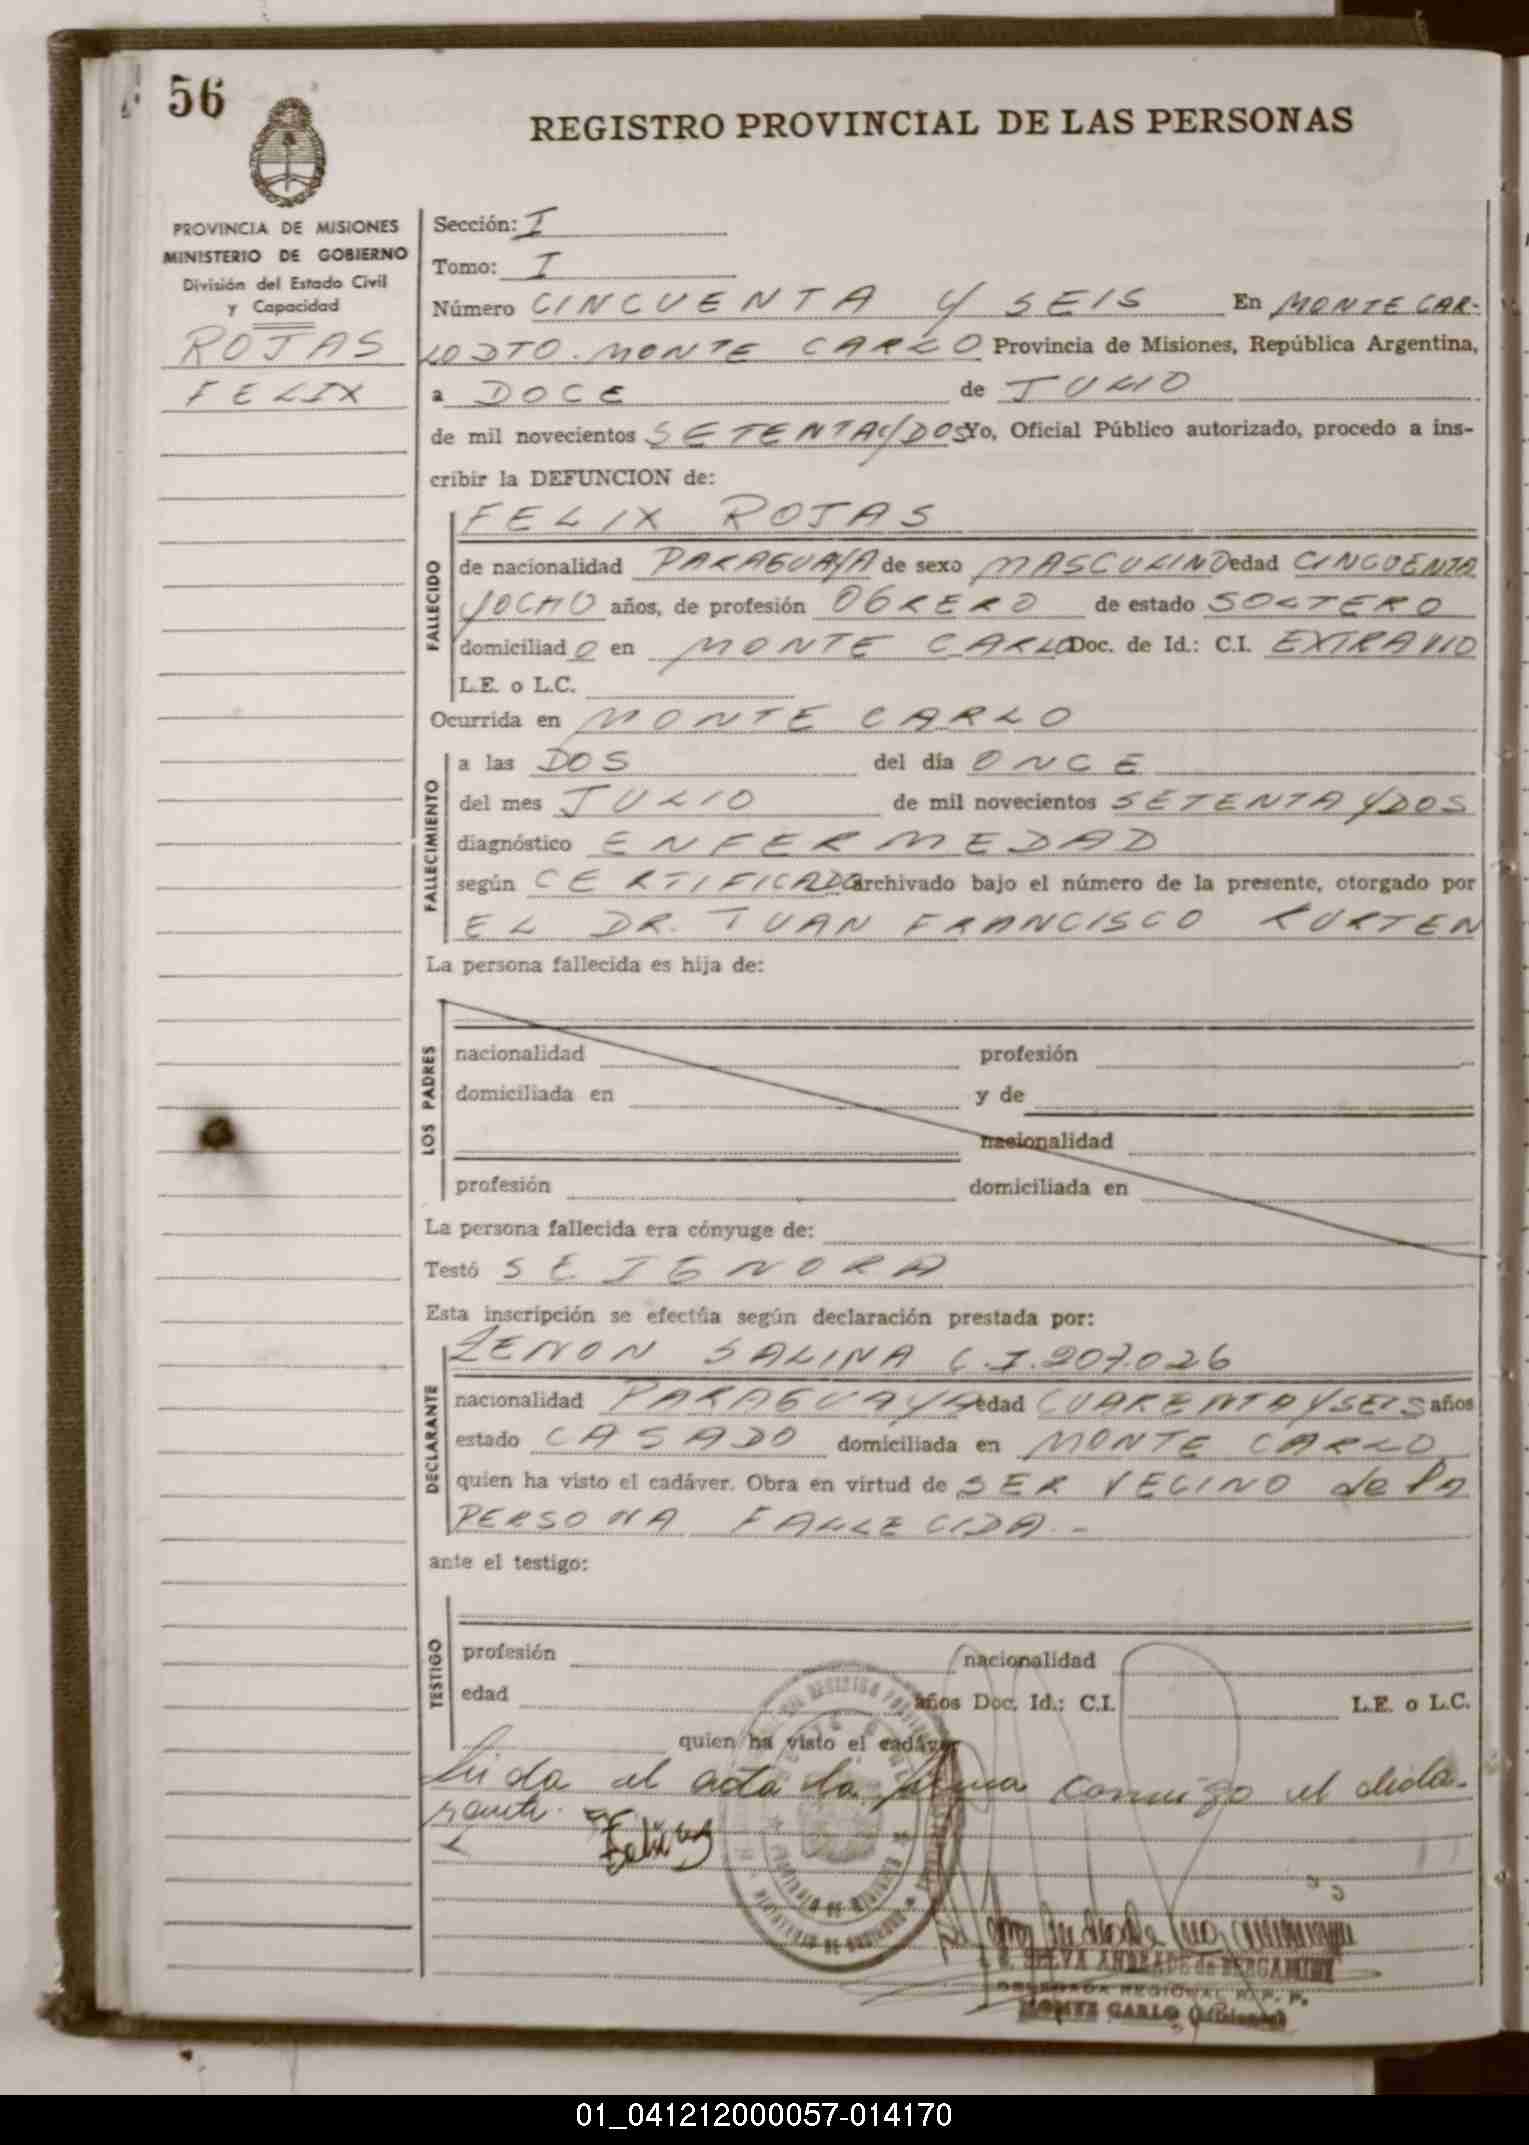 56
REGISTRO PROVINCIAL DE LAS PERSONAS
PROVINCIA DE MISIONES
MINISTERIO DE GOBIERNO
División del Estado Civil
y Capacidad
ROJAS
FELIX
Sección: I
Tomo: I
Número CINCUENTA Y SEIS En MONTE CAR-
LO DTO. MONTE CARLO Provincia de Misiones, República Argentina,
a DOCE de JULIO
de mil novecientos SETENTA Y DOS Yo, Oficial Público autorizado, procedo a ins-
cribir la DEFUNCION de:
FALLECIDO
FELIX ROJAS
de nacionalidad PARAGUAYA de sexo MASCULINO edad CINCUENTA
Y OCHO años, de profesión OBRERO de estado SOLTERO
domiciliado en MONTE CARLO Doc. de Id.: C.I. EXTRAVIO
L.E. o L.C.
Ocurrida en MONTE CARLO
FALLECIMIENTO
a las DOS del día ONCE
del mes JULIO de mil novecientos SETENTA Y DOS
diagnóstico ENFERMEDAD
según CERTIFICADO archivado bajo el número de la presente, otorgado por
EL DR. JUAN FRANCISCO KURTEN
La persona fallecida es hija de:
LOS PADRES
nacionalidad profesión
domiciliada en y de
nacionalidad
profesión domiciliada en
La persona fallecida era cónyuge de:
Testó SE IGNORA
Esta inscripción se efectúa según declaración prestada por:
DECLARANTE
ZENON SALINA C.I. 207.026
nacionalidad PARAGUAYA edad CUARENTA Y SEIS años
estado CASADO domiciliada en MONTE CARLO
quien ha visto el cadáver. Obra en virtud de SER VECINO de la
PERSONA FALLECIDA.-
ante el testigo:
TESTIGO
profesión nacionalidad
edad años Doc. Id.: C.I. L.E. o L.C.
quien ha visto el cadáver
Leida el acta la firma conmigo el decla-
rante.
SELVA ANDRADE de BERGAMINI
DELEGADA REGIONAL R. P. P.
MONTE CARLO (Misiones)
01_041212000057-014170